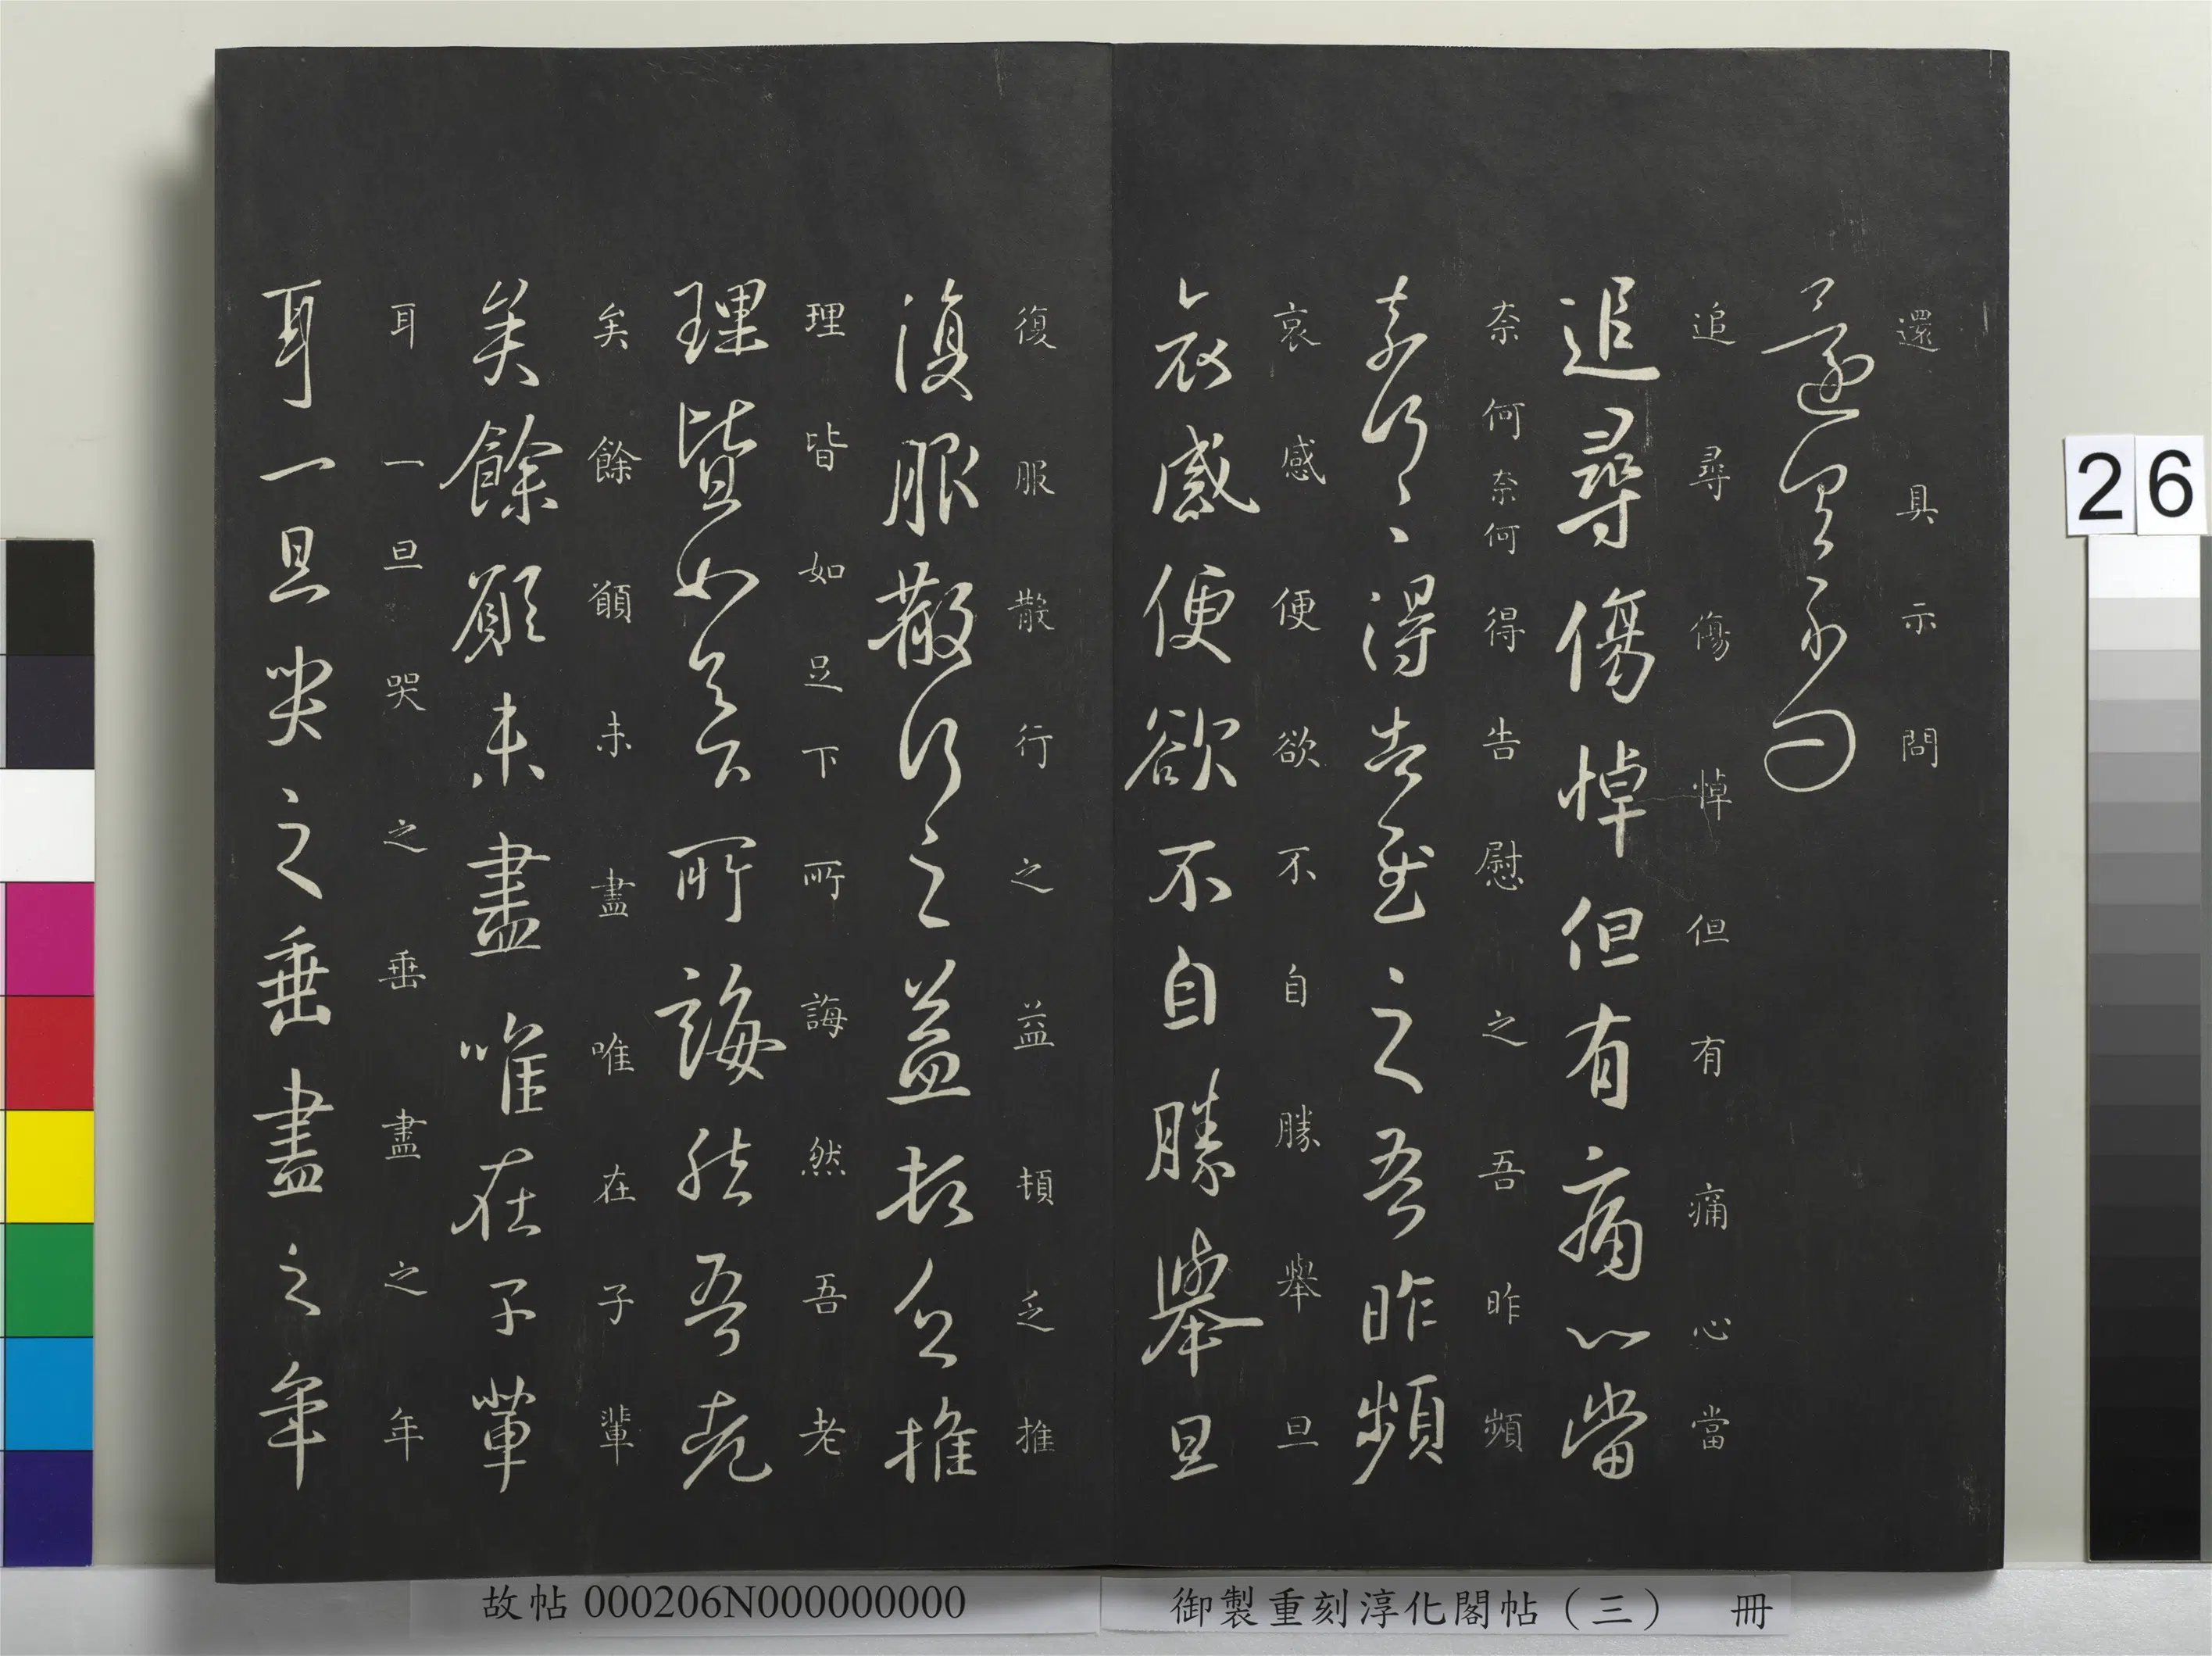 還具示問
還具示問
追尋傷悼但有痛心當
追尋傷悼但有痛心當
奈何奈何得告慰之吾昨頻
奈何〻得告慰之吾昨頻
哀感便欲不自勝舉旦
哀感便欲不自勝舉旦
復服散行之益頓乏推
復服散行之益頓乏推
理皆如足下所誨然吾老
理皆如足下所誨然吾老
矣餘願未盡唯在子輩
矣餘願未盡唯在子輩
耳一旦哭之垂盡之年
耳一旦哭之垂盡之年
26
故帖000206N000000000
御製重刻淳化閣帖（三） 冊